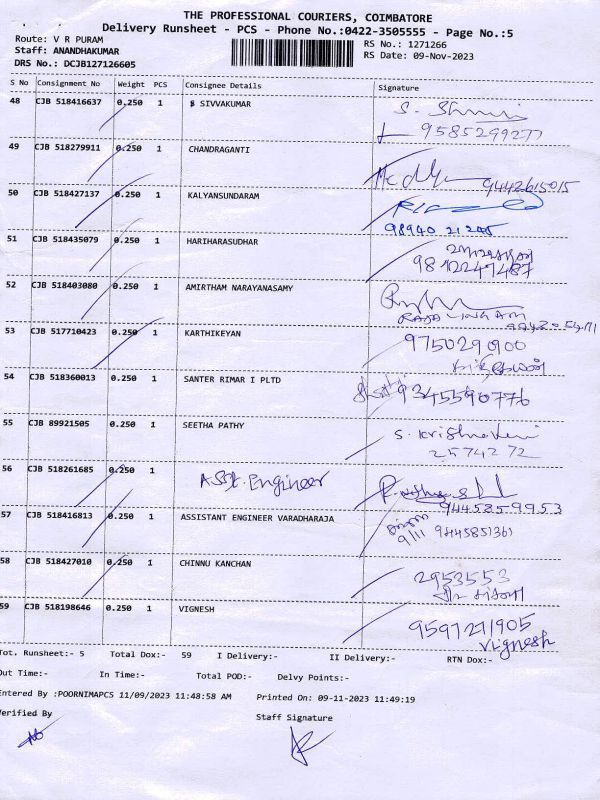 THE PROFESSIONAL COURIERS, COIMBATORE
Delivery Runsheet - PCS - Phone No.:0422-3505555 - Page No.:5
Route: V R PURAM
Staff: ANANDHAKUMAR
DRS No.: DCJB127126605
RS No.: 1271266
RS Date: 09-Nov-2023
S No Consignment No Weight PCS Consignee Details Signature
48 CJB 518416637 0.250 1 $ SIVVAKUMAR
9585299277
49 CJB 518279911 0.250 1 CHANDRAGANTI
9442615015
50 CJB 518427137 0.250 1 KALYANSUNDARAM
98940 21205
51 CJB 518435079 0.250 1 HARIHARASUDHAR
52 CJB 518403080 0.250 1 AMIRTHAM NARAYANASAMY
RAJALINGAM
53 CJB 517710423 0.250 1 KARTHIKEYAN 9750290900
கார்த்திகேயன்
54 CJB 518360013 0.250 1 SANTER RIMAR I PLTD 9345590776
55 CJB 89921505 0.250 1 SEETHA PATHY S. Krishnaveni
2574272
56 CJB 518261685 0.250 1 Asst. Engineer
9445859953
57 CJB 518416813 0.250 1 ASSISTANT ENGINEER VARADHARAJA
9/11 9445851361
58 CJB 518427010 0.250 1 CHINNU KANCHAN 2953553
59 CJB 518198646 0.250 1 VIGNESH 9597271905
Vignesh
Tot. Runsheet:- 5 Total Dox:- 59 I Delivery:- II Delivery:- RTN Dox:-
Out Time:- In Time:- Total POD:- Delvy Points:-
Entered By :POORNIMAPCS 11/09/2023 11:48:58 AM Printed On: 09-11-2023 11:49:19
Verified By Staff Signature